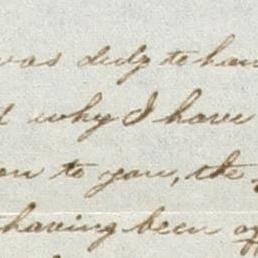 was duly to han
why I have
on to you, the
having been of